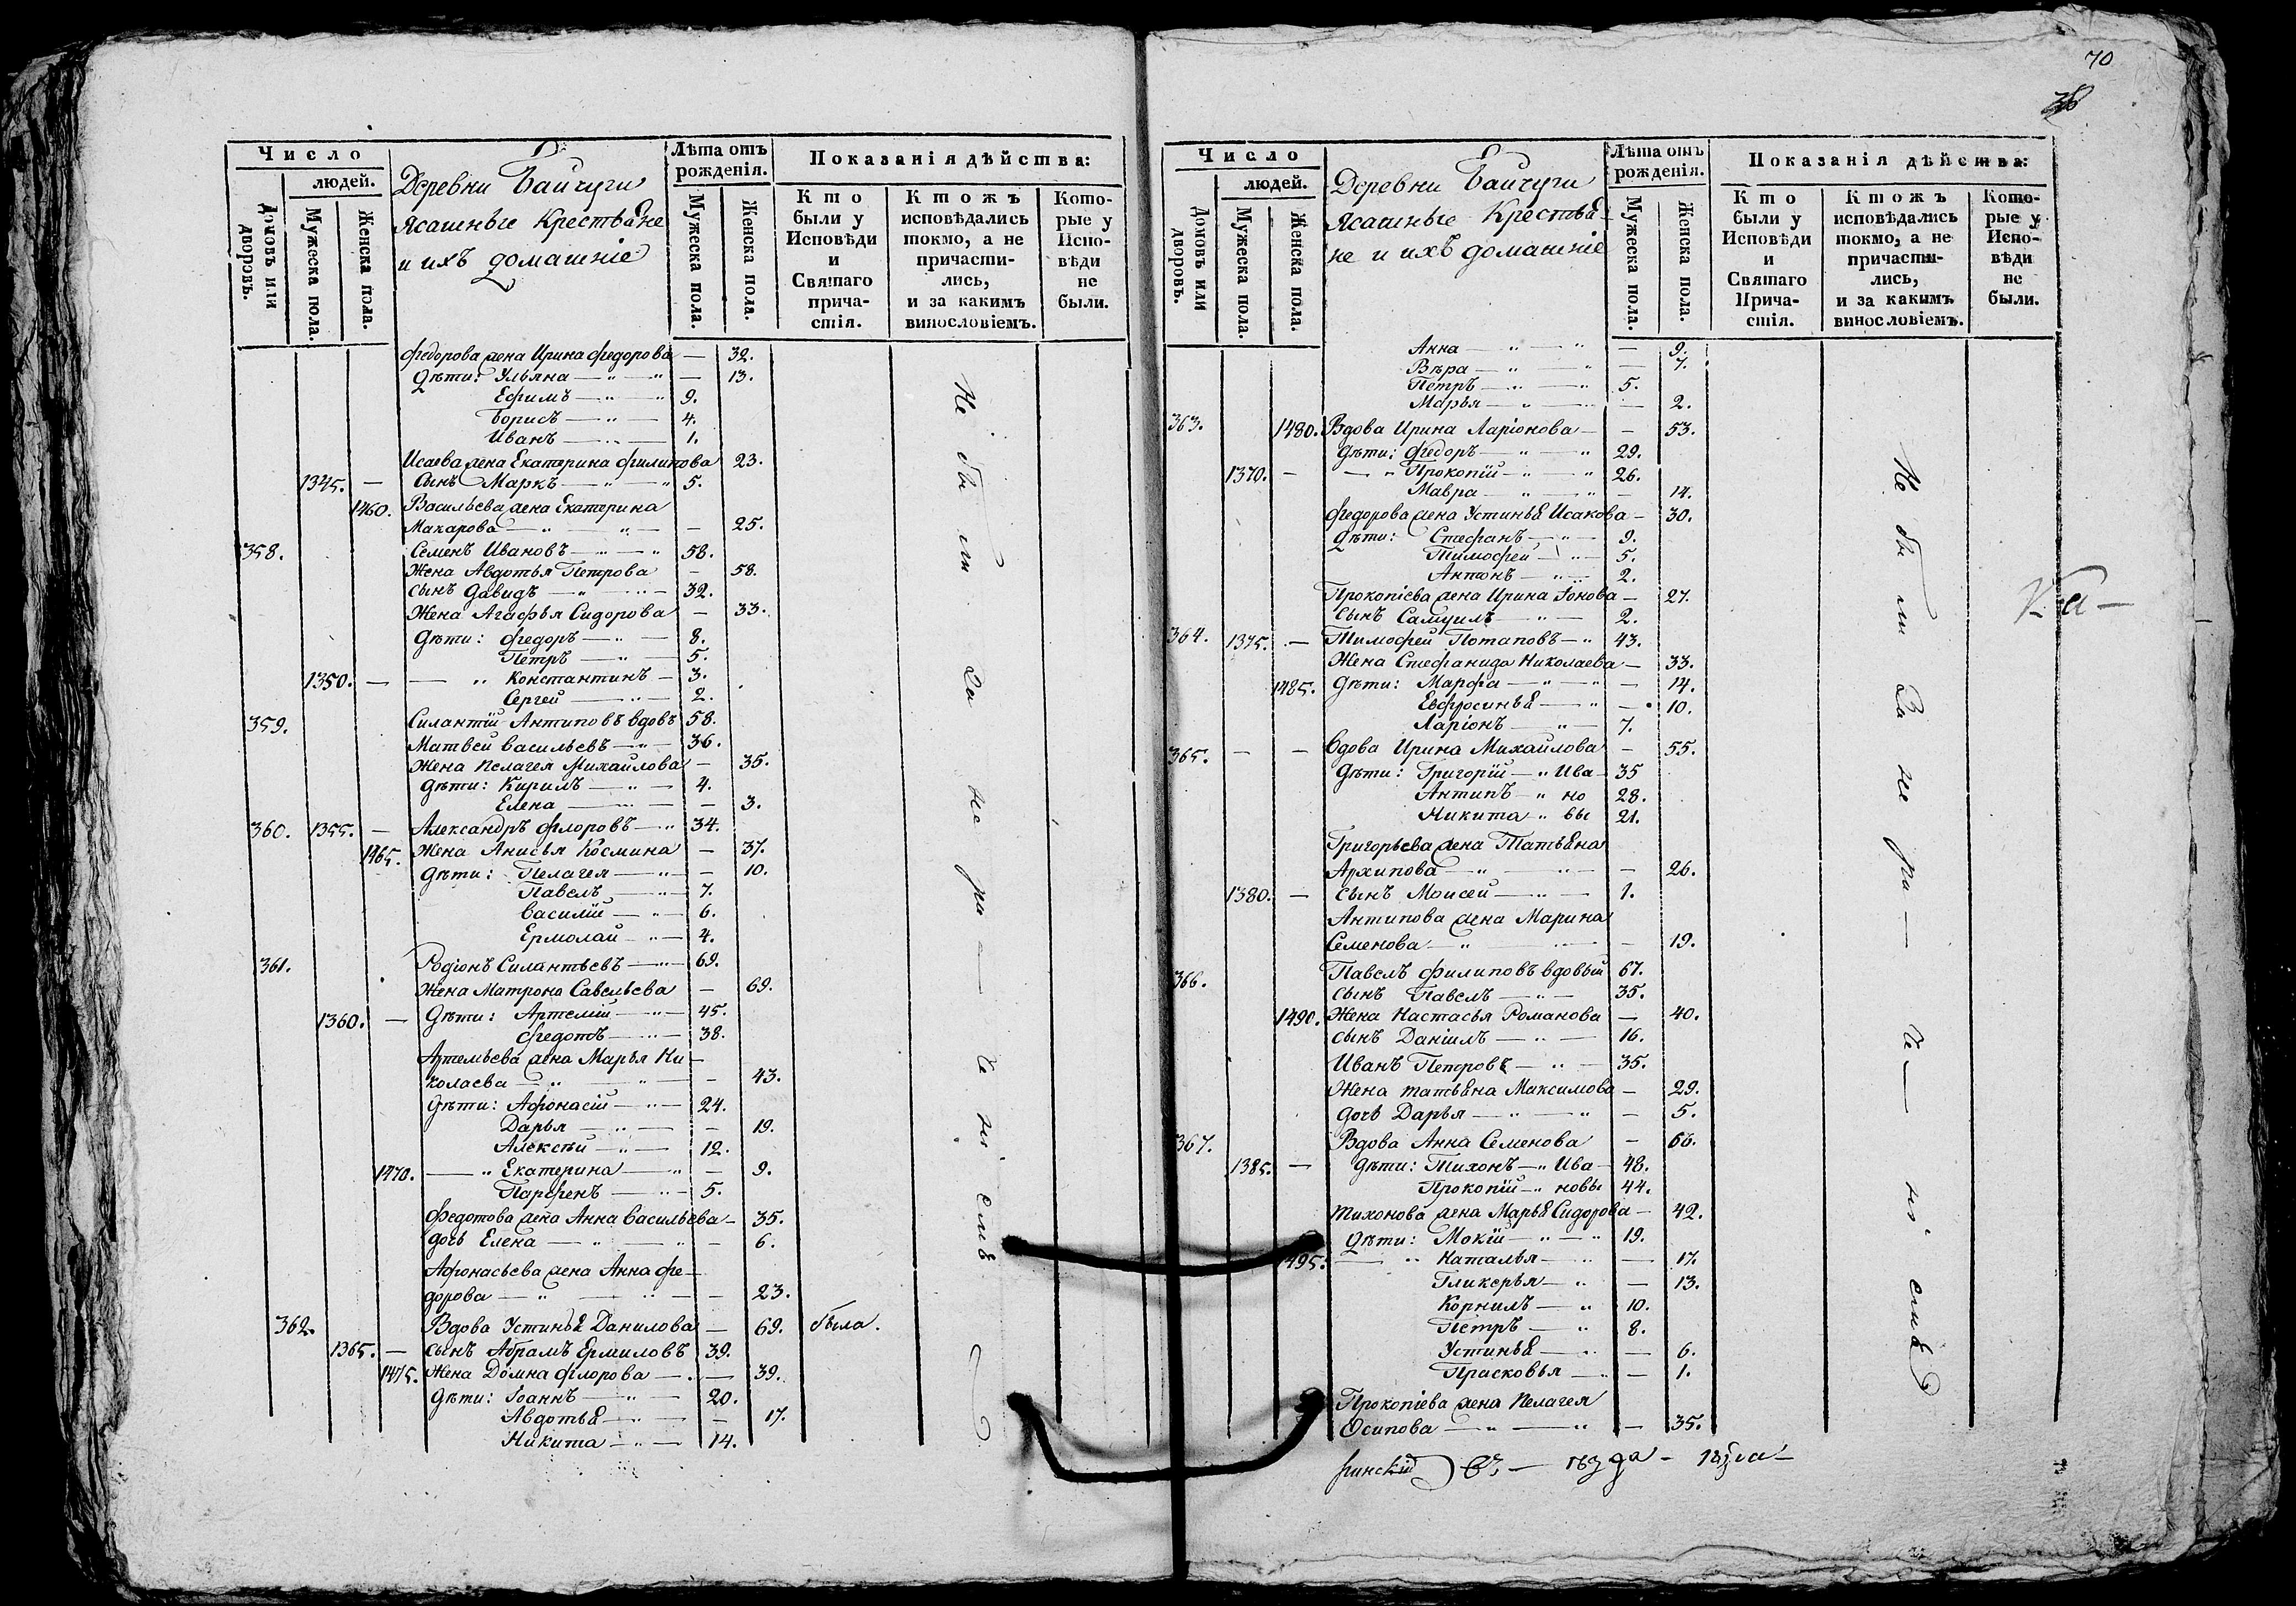 70
Число
людей.
Домовъ или дворовъ.
Мужеска пола.
Женска пола.
Деревни Байчуги
Ясашные Крестьѣне
и ихъ домашніе
Лѣта отъ рожденія.
Мужеска пола.
Женска пола.
Показанія дѣйства:
Кто были у Исповѣди и Святаго причастія.
Ктожъ исповѣдались токмо, а не причастились, и за какимъ винословіемъ.
Которые у Исповѣди не были.
Федорова жена Ирина Федорова — 32.
Дѣти: Ульяна — 13.
Ефимъ 9.
Борисъ 4.
Иванъ 1.
Исаева жена Екатерина Филипова 23.
1345. — Сынъ Маркъ 5.
1460. Васильева жена Екатерина
Макарова — 25.
358. Семенъ Ивановъ 58.
Жена Авдотья Петрова — 58.
сынъ Давидъ 32.
Жена Агафья Сидорова — 33.
Дѣти: Федоръ 8.
Петръ 5.
1350. — Константинъ 3.
Сергей 2.
359. Силантій Антиповъ вдовъ 58.
Матвей Васильевъ 36.
Жена Пелагея Михайлова — 35.
Дѣти: Кирилъ 4.
Елена — 3.
360. 1355. — Александръ Флоровъ 34.
1465. Жена Анисья Космина — 37.
Дѣти: Пелагея — 10.
Павелъ 7.
Василій 6.
Ермолай 4.
361. Родіонъ Силантьевъ 69.
Жена Матрона Савельева — 69.
1360. — Дѣти: Артемій 45.
Федотъ 38.
Артемьева жена Марья Ни-
колаева — 43.
Дѣти: Афонасій 24.
Дарья — 19.
Алексѣй 12.
1470. — Екатерина — 9.
Парфенъ 5.
Федотова жена Анна Васильева — 35.
дочь Елена — 6.
Афонасьева жена Анна Фе-
дорова — 23.
362. Вдова Устинья Данилова — 69. была.
1365. — сынъ Абрамъ Ермиловъ 39.
1475. Жена Домна Флорова — 39.
Дѣти: Іоаннъ 20.
Авдотья — 17.
Никита 14.
Не были за нера-
че ніемъ
Число
людей.
Домовъ или дворовъ.
Мужеска пола.
Женска пола.
Деревни Байчуги
Ясашные Крестьѣ-
не и ихъ домашніе
Лѣта отъ рожденія.
Мужеска пола.
Женска пола.
Показанія дѣйства:
Кто были у Исповѣди и Святаго Причастія.
Ктожъ исповѣдались токмо, а не причастились, и за какимъ винословіемъ.
Которые у Исповѣди не были.
Анна — 9.
Вѣра — 7.
Петръ 5.
Марья — 2.
363. 1480. Вдова Ирина Ларіонова — 53.
Дѣти: Федоръ 29.
1370. — Прокопій 26.
Мавра — 14.
Федорова жена Устинья Исакова — 30.
Дѣти: Стефанъ 9.
Тимофей 5.
Антонъ 2.
Прокопіева жена Ирина Іонова — 27.
сынъ Самуилъ 2.
364. 1375. — Тимофей Потаповъ 43.
Жена Стефанида Николаева — 33.
1485. Дѣти: Марфа — 14.
Евфросинья — 10.
Ларіонъ 7.
365. — — Вдова Ирина Михайлова — 55.
Дѣти: Григорій — Ива- 35
Антипъ — но 28.
Никита — вы 21.
Григорьева жена Татьяна
Архипова — 26.
1380. — сынъ Моисей 1.
Антипова жена Марина
Семенова — 19.
366. Павелъ Филиповъ вдовый 67.
сынъ Павелъ 35.
1490. Жена Настасья Романова — 40.
сынъ Даніилъ 16.
Иванъ Петровъ 35.
Жена Татьяна Максимова — 29.
дочь Дарья — 5.
367. Вдова Анна Семенова — 66.
1385. — Дѣти: Тихонъ — Ива- 48.
Прокопій — новы 44.
Тихонова жена Марья Сидорова — 42.
Дѣти: Мокій 19.
1495. — Наталья — 17.
Гликерья — 13.
Корнилъ 10.
Петръ 8.
Устинья — 6.
Прасковья — 1.
Прокопіева жена Пелагея
Осипова — 35.
Не были за нера-
че- ніемъ